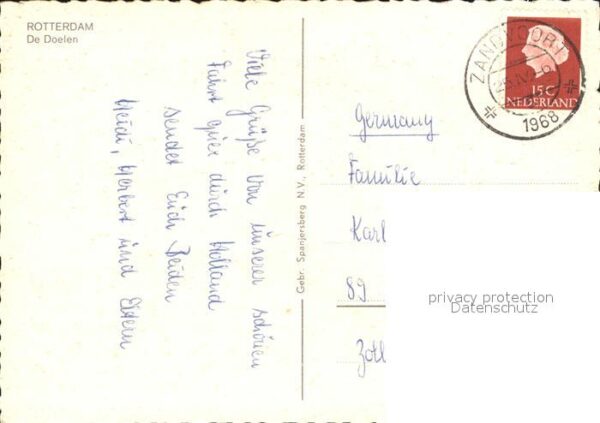 ROTTERDAM
De Doelen
Viele Grüße von unserer schönen
Fahrt quer durch Holland
sendet Euch Beiden
Heidi, Herbert und Eltern
Gebr. Spanjersberg N.V., Rotterdam
ZANDVOORT
1968
15 C
NEDERLAND
Germany
Familie
Karl
89
Zoll
privacy protection
Datenschutz